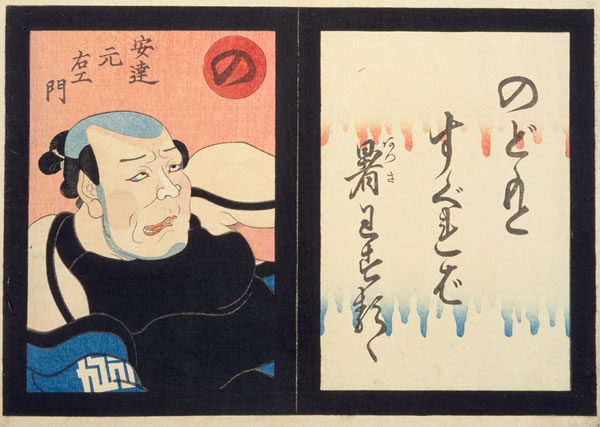 のどもと
すぐれば
暑わするゝ
あつさ
の
安達
元
右エ
門